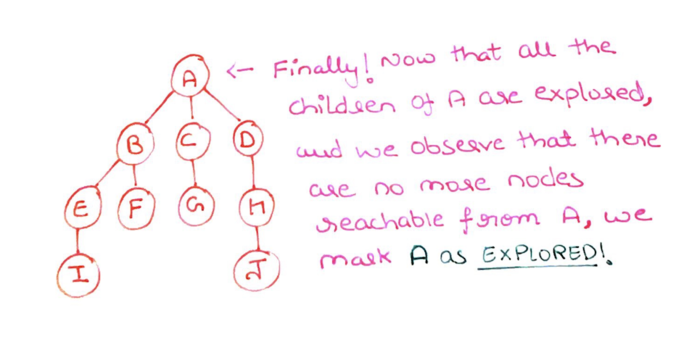 A <- Finally! Now that all the
children of A are explored,
B C D and we observe that there
are no more nodes
E F G H reachable from A, we
mark A as EXPLORED!.
I J